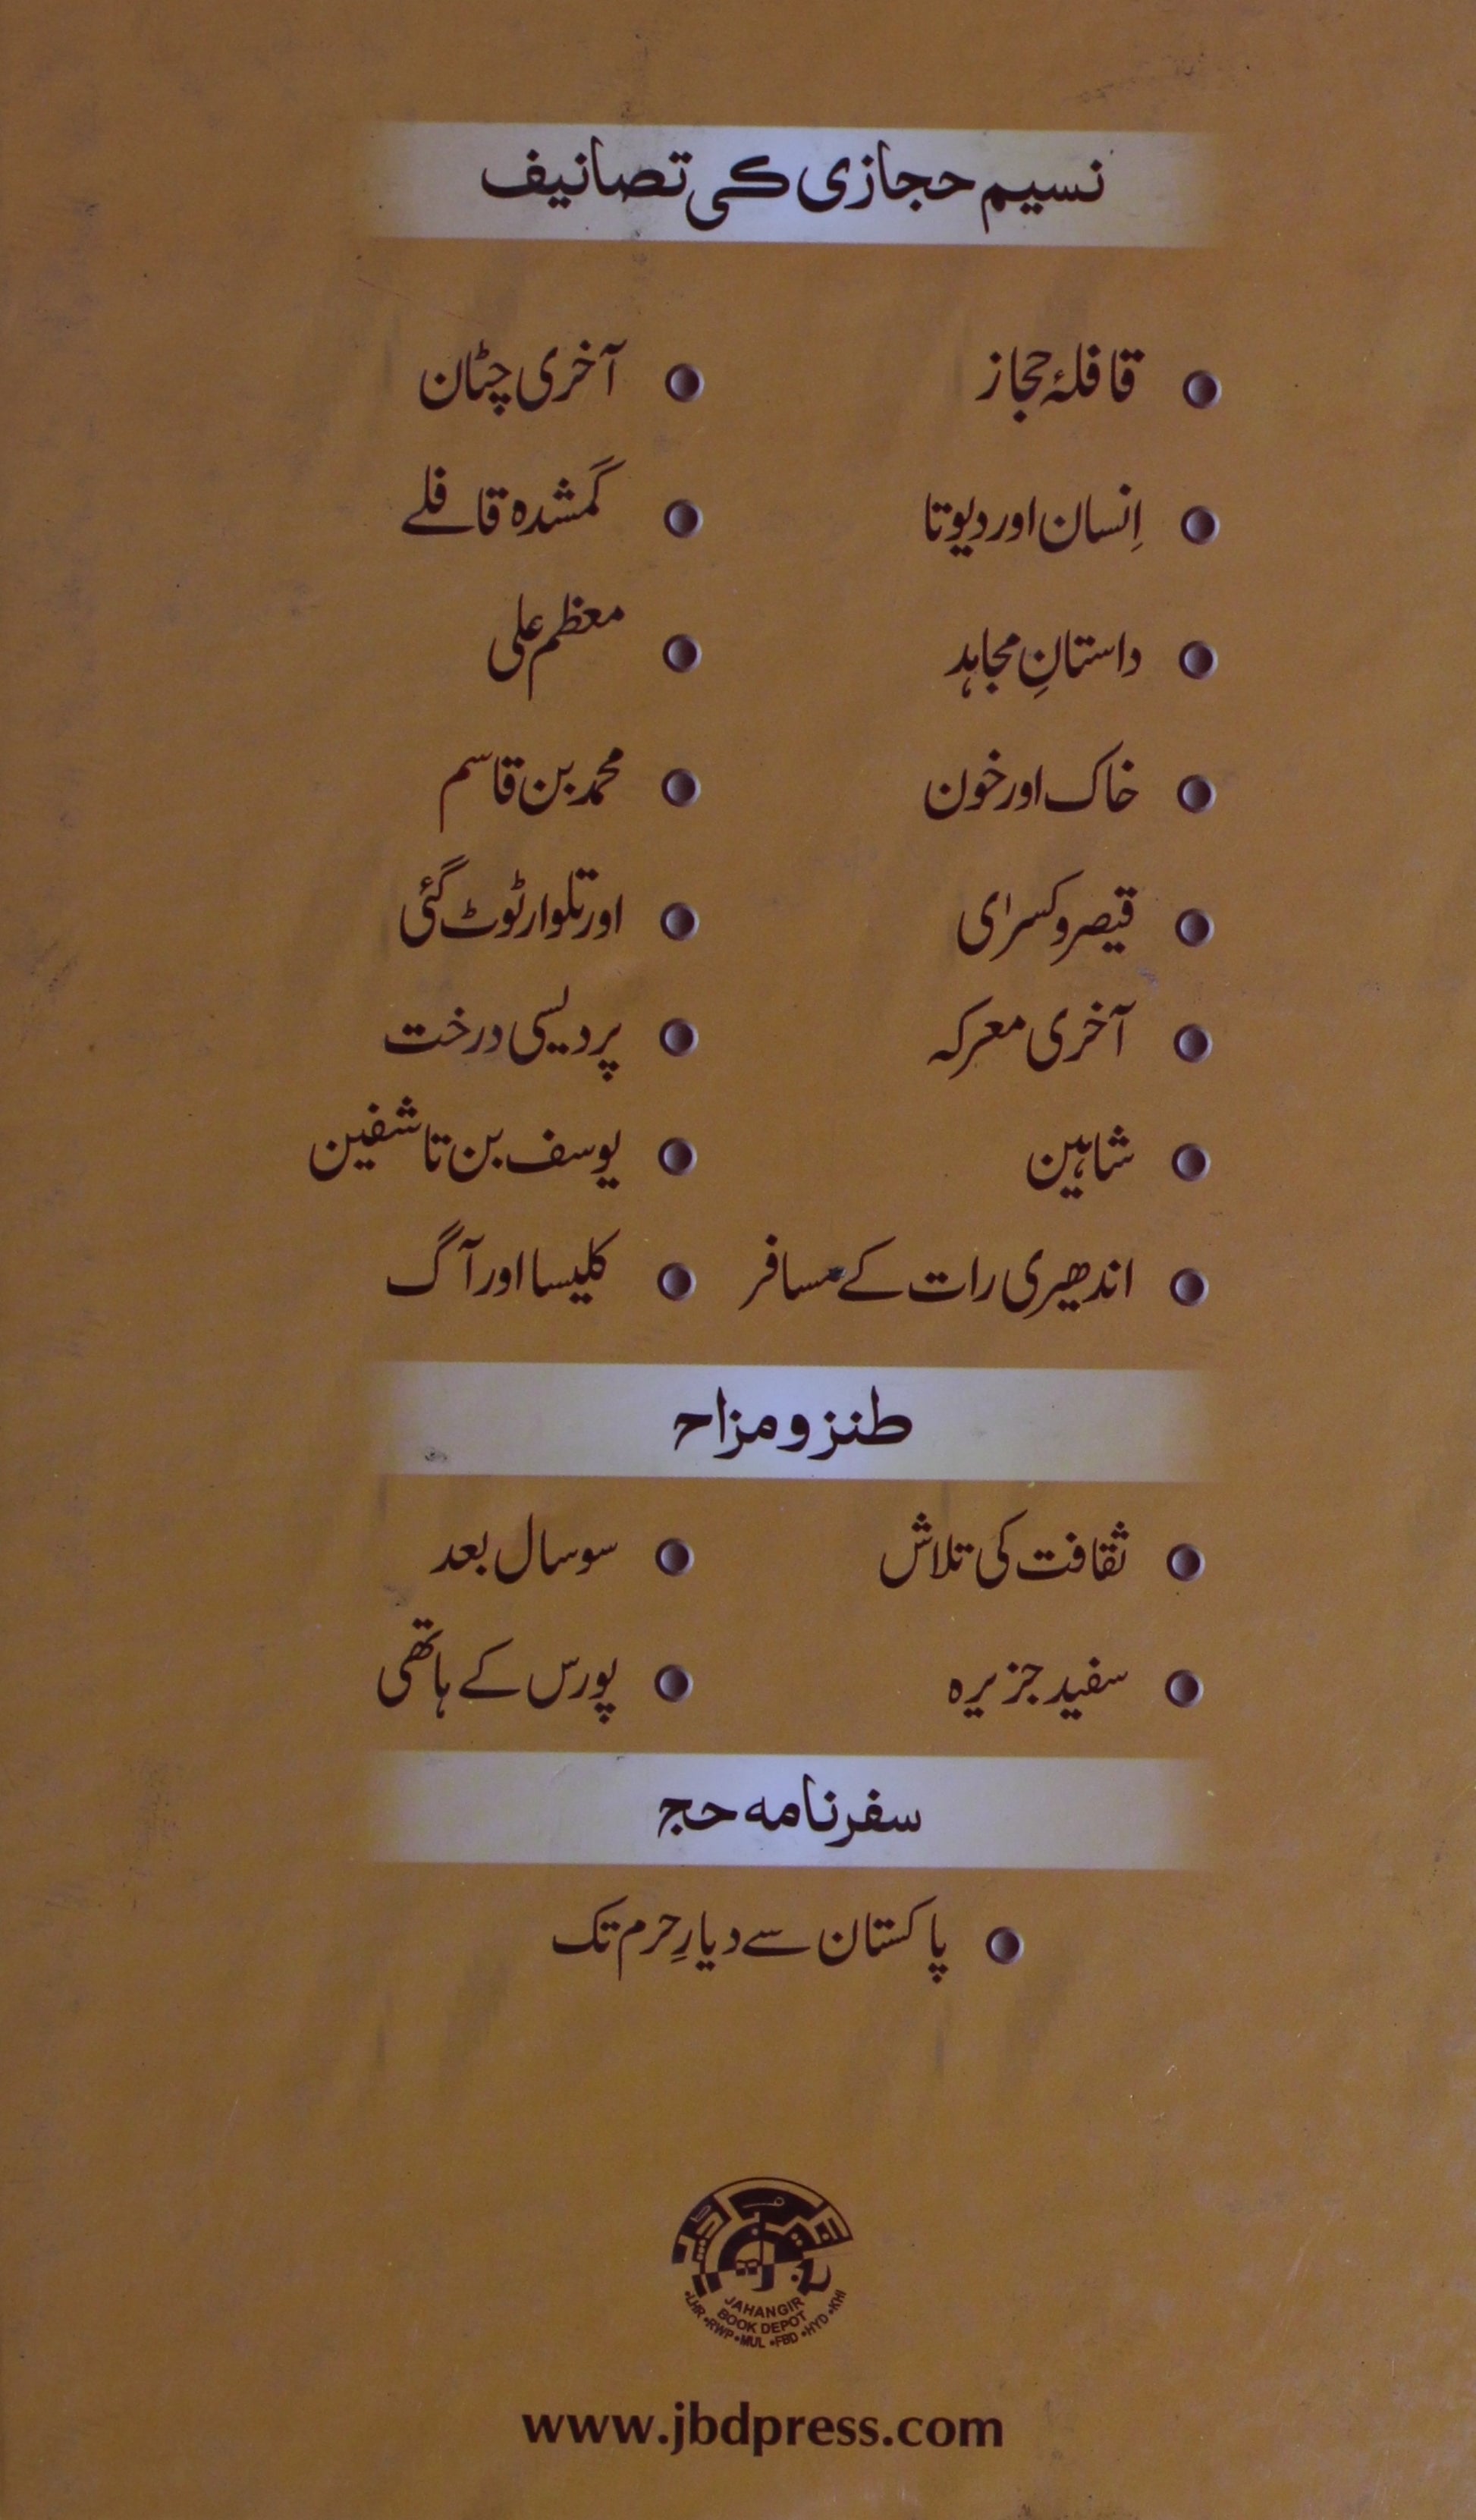 نسیم حجازی کی تصانیف
قافلۂ حجاز
آخری چٹان
اِنسان اور دیوتا
گمشدہ قافلے
داستانِ مجاہد
معظم علی
خاک اور خون
محمد بن قاسم
قیصر و کسریٰ
اور تلوار ٹوٹ گئی
آخری معرکہ
پردیسی درخت
شاہین
یوسف بن تاشفین
اندھیری رات کے مسافر
کلیسا اور آگ
طنز و مزاح
ثقافت کی تلاش
سو سال بعد
سفید جزیرہ
پورس کے ہاتھی
سفرنامہ حج
پاکستان سے دیارِ حرم تک
JAHANGIR
BOOK DEPOT
•LHR •RWP •MUL •FBD •HYD •KHI
www.jbdpress.com